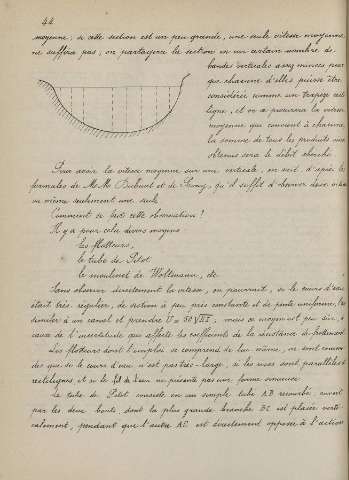 44
moyenne; si cette section est un peu grande, une seule vitesse moyenne
ne suffira pas; on partagera la section en un certain nombre de
bandes verticales assez minces pour
que chacune d'elles puisse être
considérée comme un trapèze rec
tiligne, et on y prendra la vitesse
moyenne qui convient à chacune
la somme de tous les produits ainsi
obtenus sera le débit cherché
Pour avoir la vitesse moyenne sur une verticale, on sait, d'après les
formules de MM. et de Prony, qu'il suffit d'observer deux vitesses
ou même seulement une seule
Comment se fait cette observation?
Il y a pour cela divers moyens
Les flotteurs,
le tube de Pitot
le moulinet de Woltmann, etc
Sans observer directement la vitesse, on pourrait, si le cours d'eau
était très régulier, de section à peu près constante et de pente uniforme, l'as
similer à un canal et prendre U = 50 √RI, mais ce moyen est peu sûr, à
cause de l'incertitude qui affecte les coefficients de la résistance du frottement
Les flotteurs dont l'emploi se comprend de lui même, ne sont commo
des que si le cours d'eau n'est pas très large, si les rives sont parallèles et
rectilignes et si le fil de l'eau ne présente pas une forme sinueuse
Le tube de Pitot consiste en un simple tube AB recourbé, ouvert
par les deux bouts dont la plus grande branche BC est placée verti
calement, pendant que l'autre AC est directement opposée à l'action